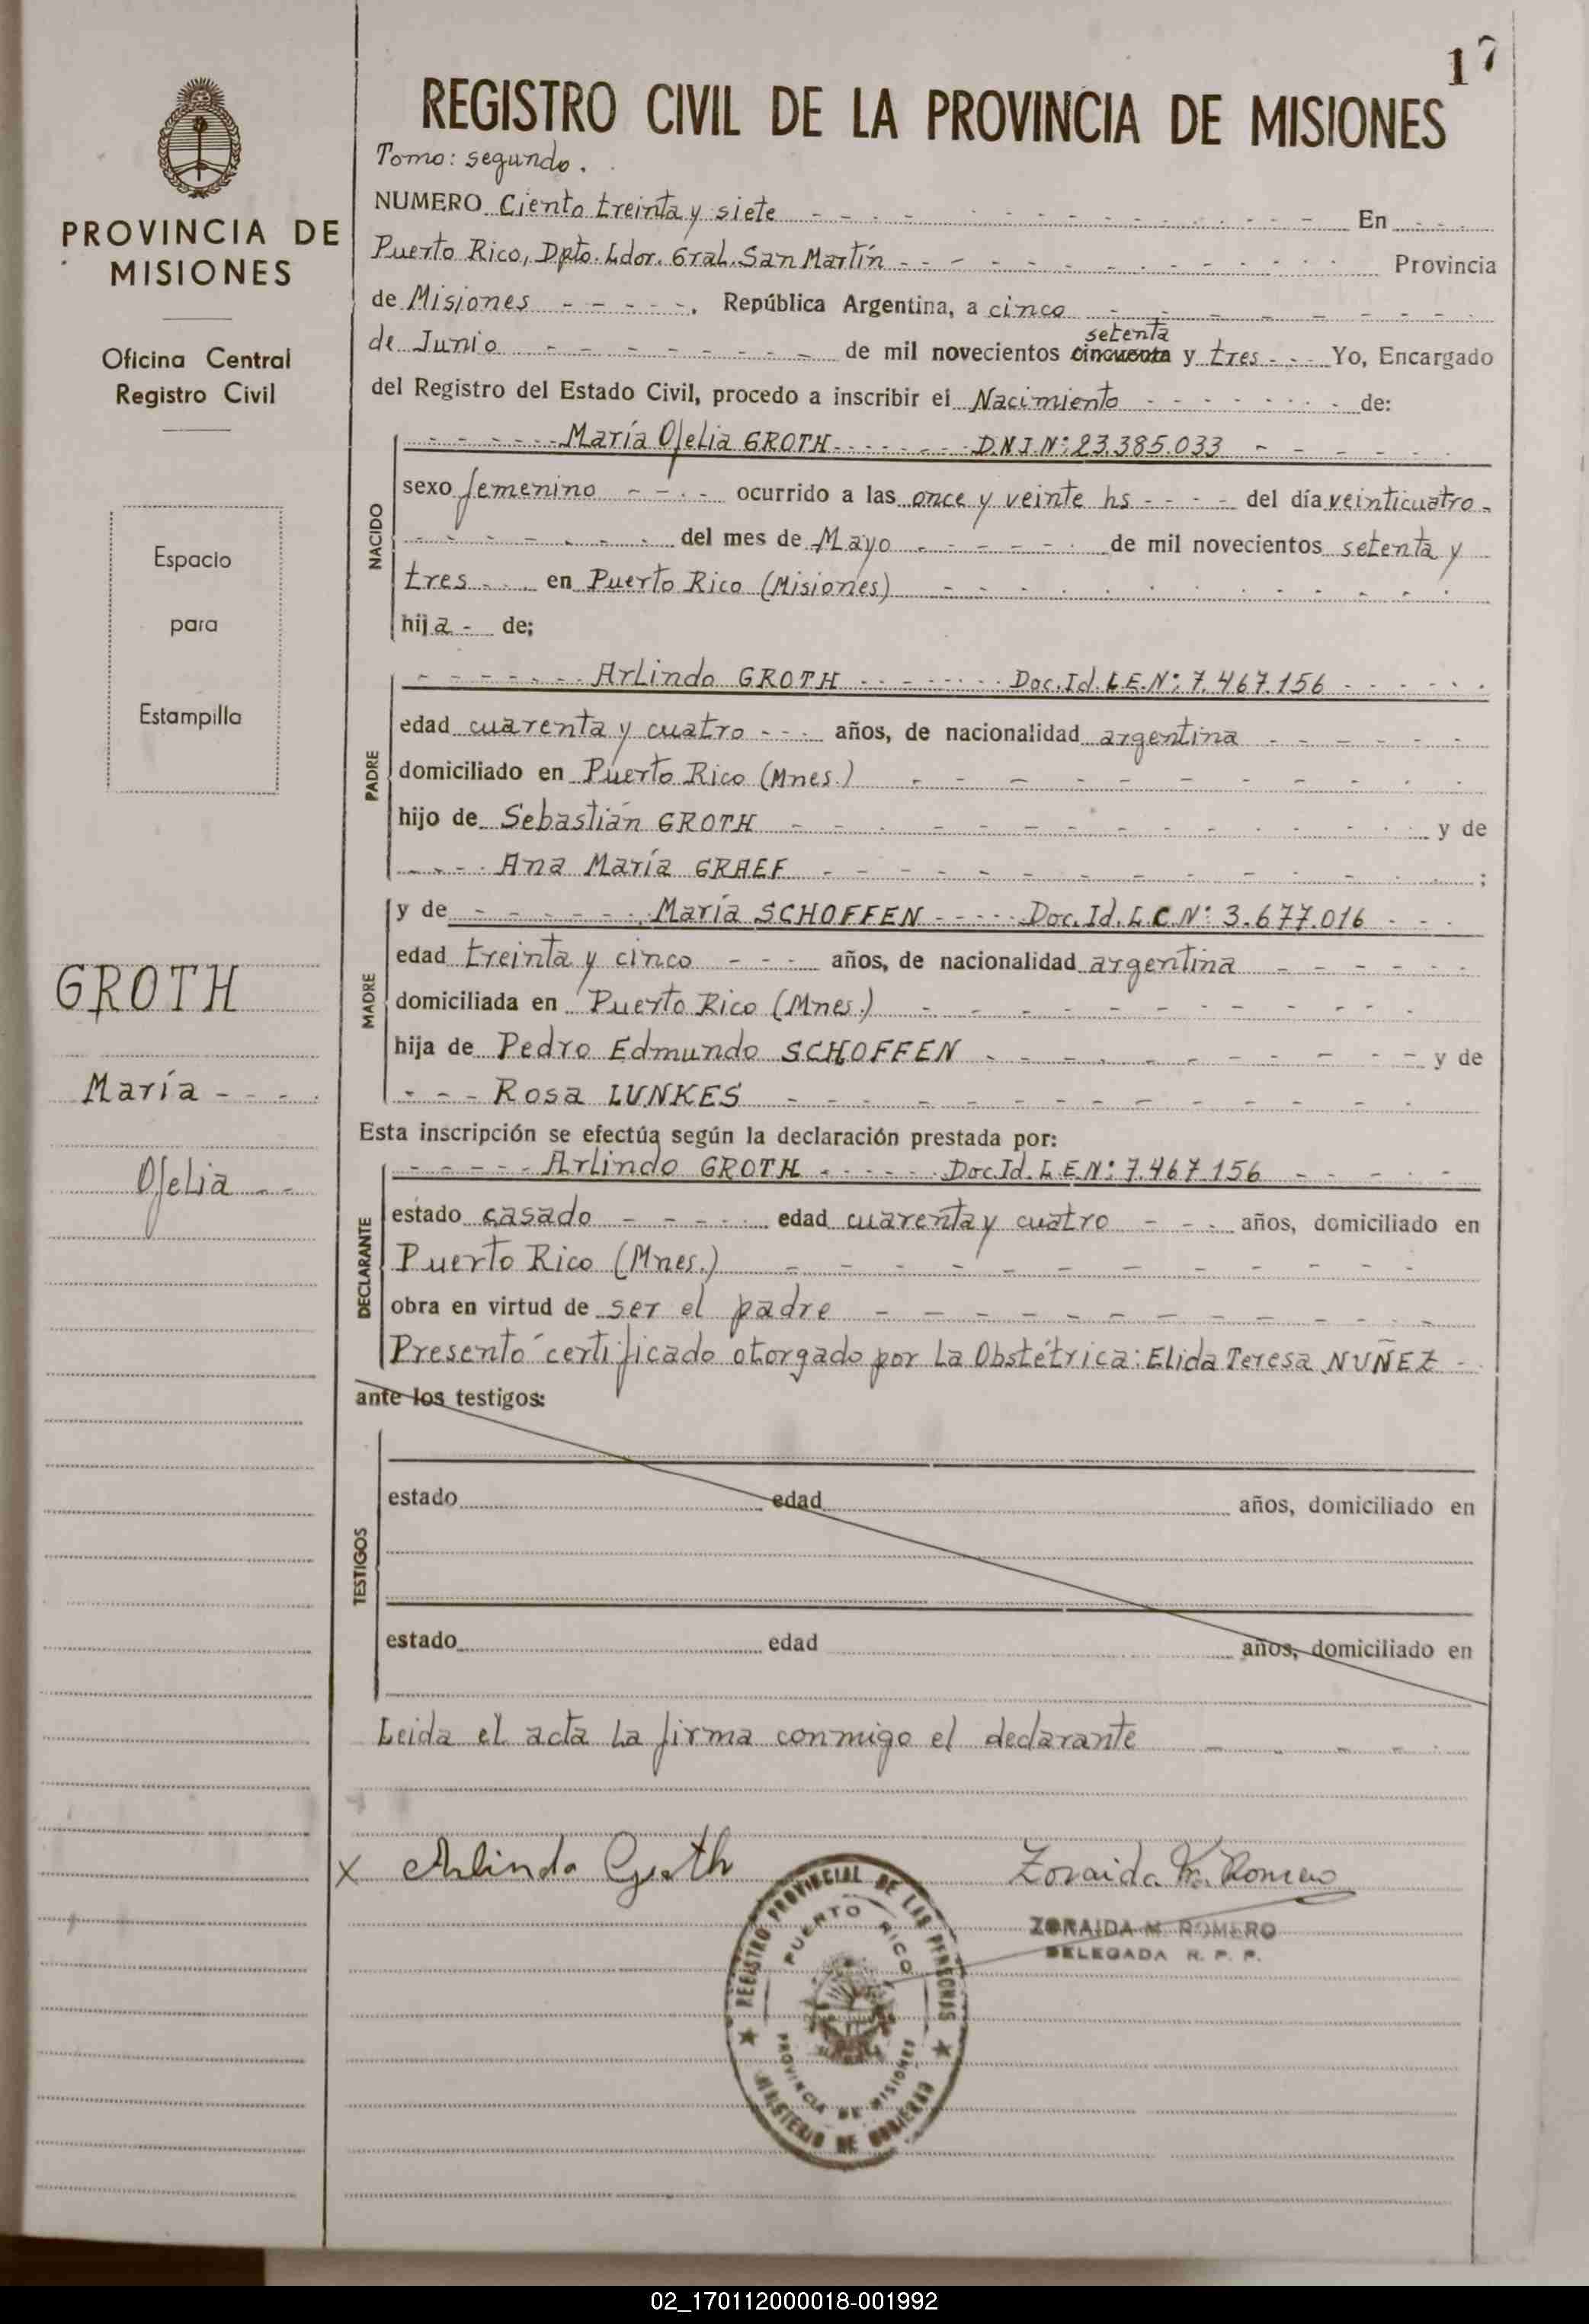 17
REGISTRO CIVIL DE LA PROVINCIA DE MISIONES
Tomo: segundo.
NUMERO Ciento treinta y siete En
Puerto Rico, Dpto. Ldor. Gral. San Martín Provincia
de Misiones. República Argentina, a cinco
setenta
de Junio de mil novecientos cincuenta y tres Yo, Encargado
del Registro del Estado Civil, procedo a inscribir el Nacimiento de:
NACIDO
María Ofelia GROTH D.N.I.Nº: 23.385.033
sexo femenino ocurrido a las once y veinte hs del día veinticuatro
del mes de Mayo de mil novecientos setenta y
tres en Puerto Rico (Misiones)
hija de;
PADRE
Arlindo GROTH Doc.Id.L.E.Nº: 7.467.156
edad cuarenta y cuatro años, de nacionalidad argentina
domiciliado en Puerto Rico (Mnes.)
hijo de Sebastián GROTH y de
Ana María GRAEF ;
MADRE
y de María SCHOFFEN Doc.Id.L.C.Nº: 3.677.016
edad treinta y cinco años, de nacionalidad argentina
domiciliada en Puerto Rico (Mnes.)
hija de Pedro Edmundo SCHOFFEN y de
Rosa LUNKES
Esta inscripción se efectúa según la declaración prestada por:
DECLARANTE
Arlindo GROTH Doc.Id.L.E.Nº: 7.467.156
estado casado edad cuarenta y cuatro años, domiciliado en
Puerto Rico (Mnes.)
obra en virtud de ser el padre
Presentó certificado otorgado por la Obstétrica: Elida Teresa NUÑEZ
ante los testigos:
TESTIGOS
estado edad años, domiciliado en
estado edad años, domiciliado en
Leida el acta la firma conmigo el declarante
x Arlindo Groth
Zoraida M. Romero
ZORAIDA M. ROMERO
DELEGADA R. P. P.
REGISTRO PROVINCIAL DE LAS PERSONAS
PUERTO RICO
PROVINCIA DE MISIONES
MINISTERIO DE GOBIERNO
PROVINCIA DE
MISIONES
Oficina Central
Registro Civil
Espacio
para
Estampilla
GROTH
María
Ofelia
02_170112000018-001992